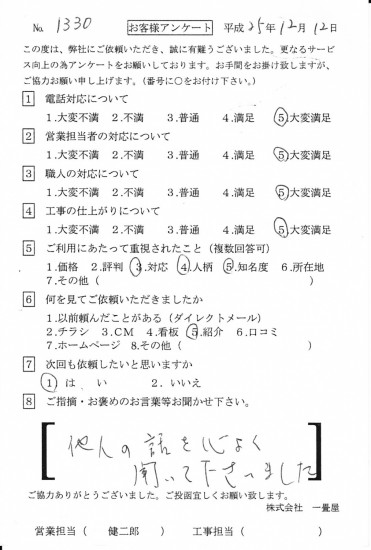 No. 1330 お客様アンケート 平成 25年12月12日
この度は、弊社にご依頼いただき、誠に有難うございました。更なるサービ
ス向上の為アンケートをお願いしております。お手間をお掛け致しますが、
ご協力お願い申し上げます。(番号に○をお付け下さい。)
1 電話対応について
1.大変不満 2.不満 3.普通 4.満足 5.大変満足
2 営業担当者の対応について
1.大変不満 2.不満 3.普通 4.満足 5.大変満足
3 職人の対応について
1.大変不満 2.不満 3.普通 4.満足 5.大変満足
4 工事の仕上がりについて
1.大変不満 2.不満 3.普通 4.満足 5.大変満足
5 ご利用にあたって重視されたこと(複数回答可)
1.価格 2.評判 3.対応 4.人柄 5.知名度 6.所在地
7.その他( )
6 何を見てご依頼いただきましたか
1.以前頼んだことがある(ダイレクトメール)
2.チラシ 3.CM 4.看板 5.紹介 6.口コミ
7.ホームページ 8.その他( )
7 次回も依頼したいと思いますか
1 は い 2. いいえ
8 ご指摘・お褒めのお言葉等お聞かせ下さい。
他人の話を心よく
聞いて下さいました
ご協力ありがとうございました。ご投函宜しくお願い致します。
株式会社 一畳屋
営業担当( 健二郎 ) 工事担当( )